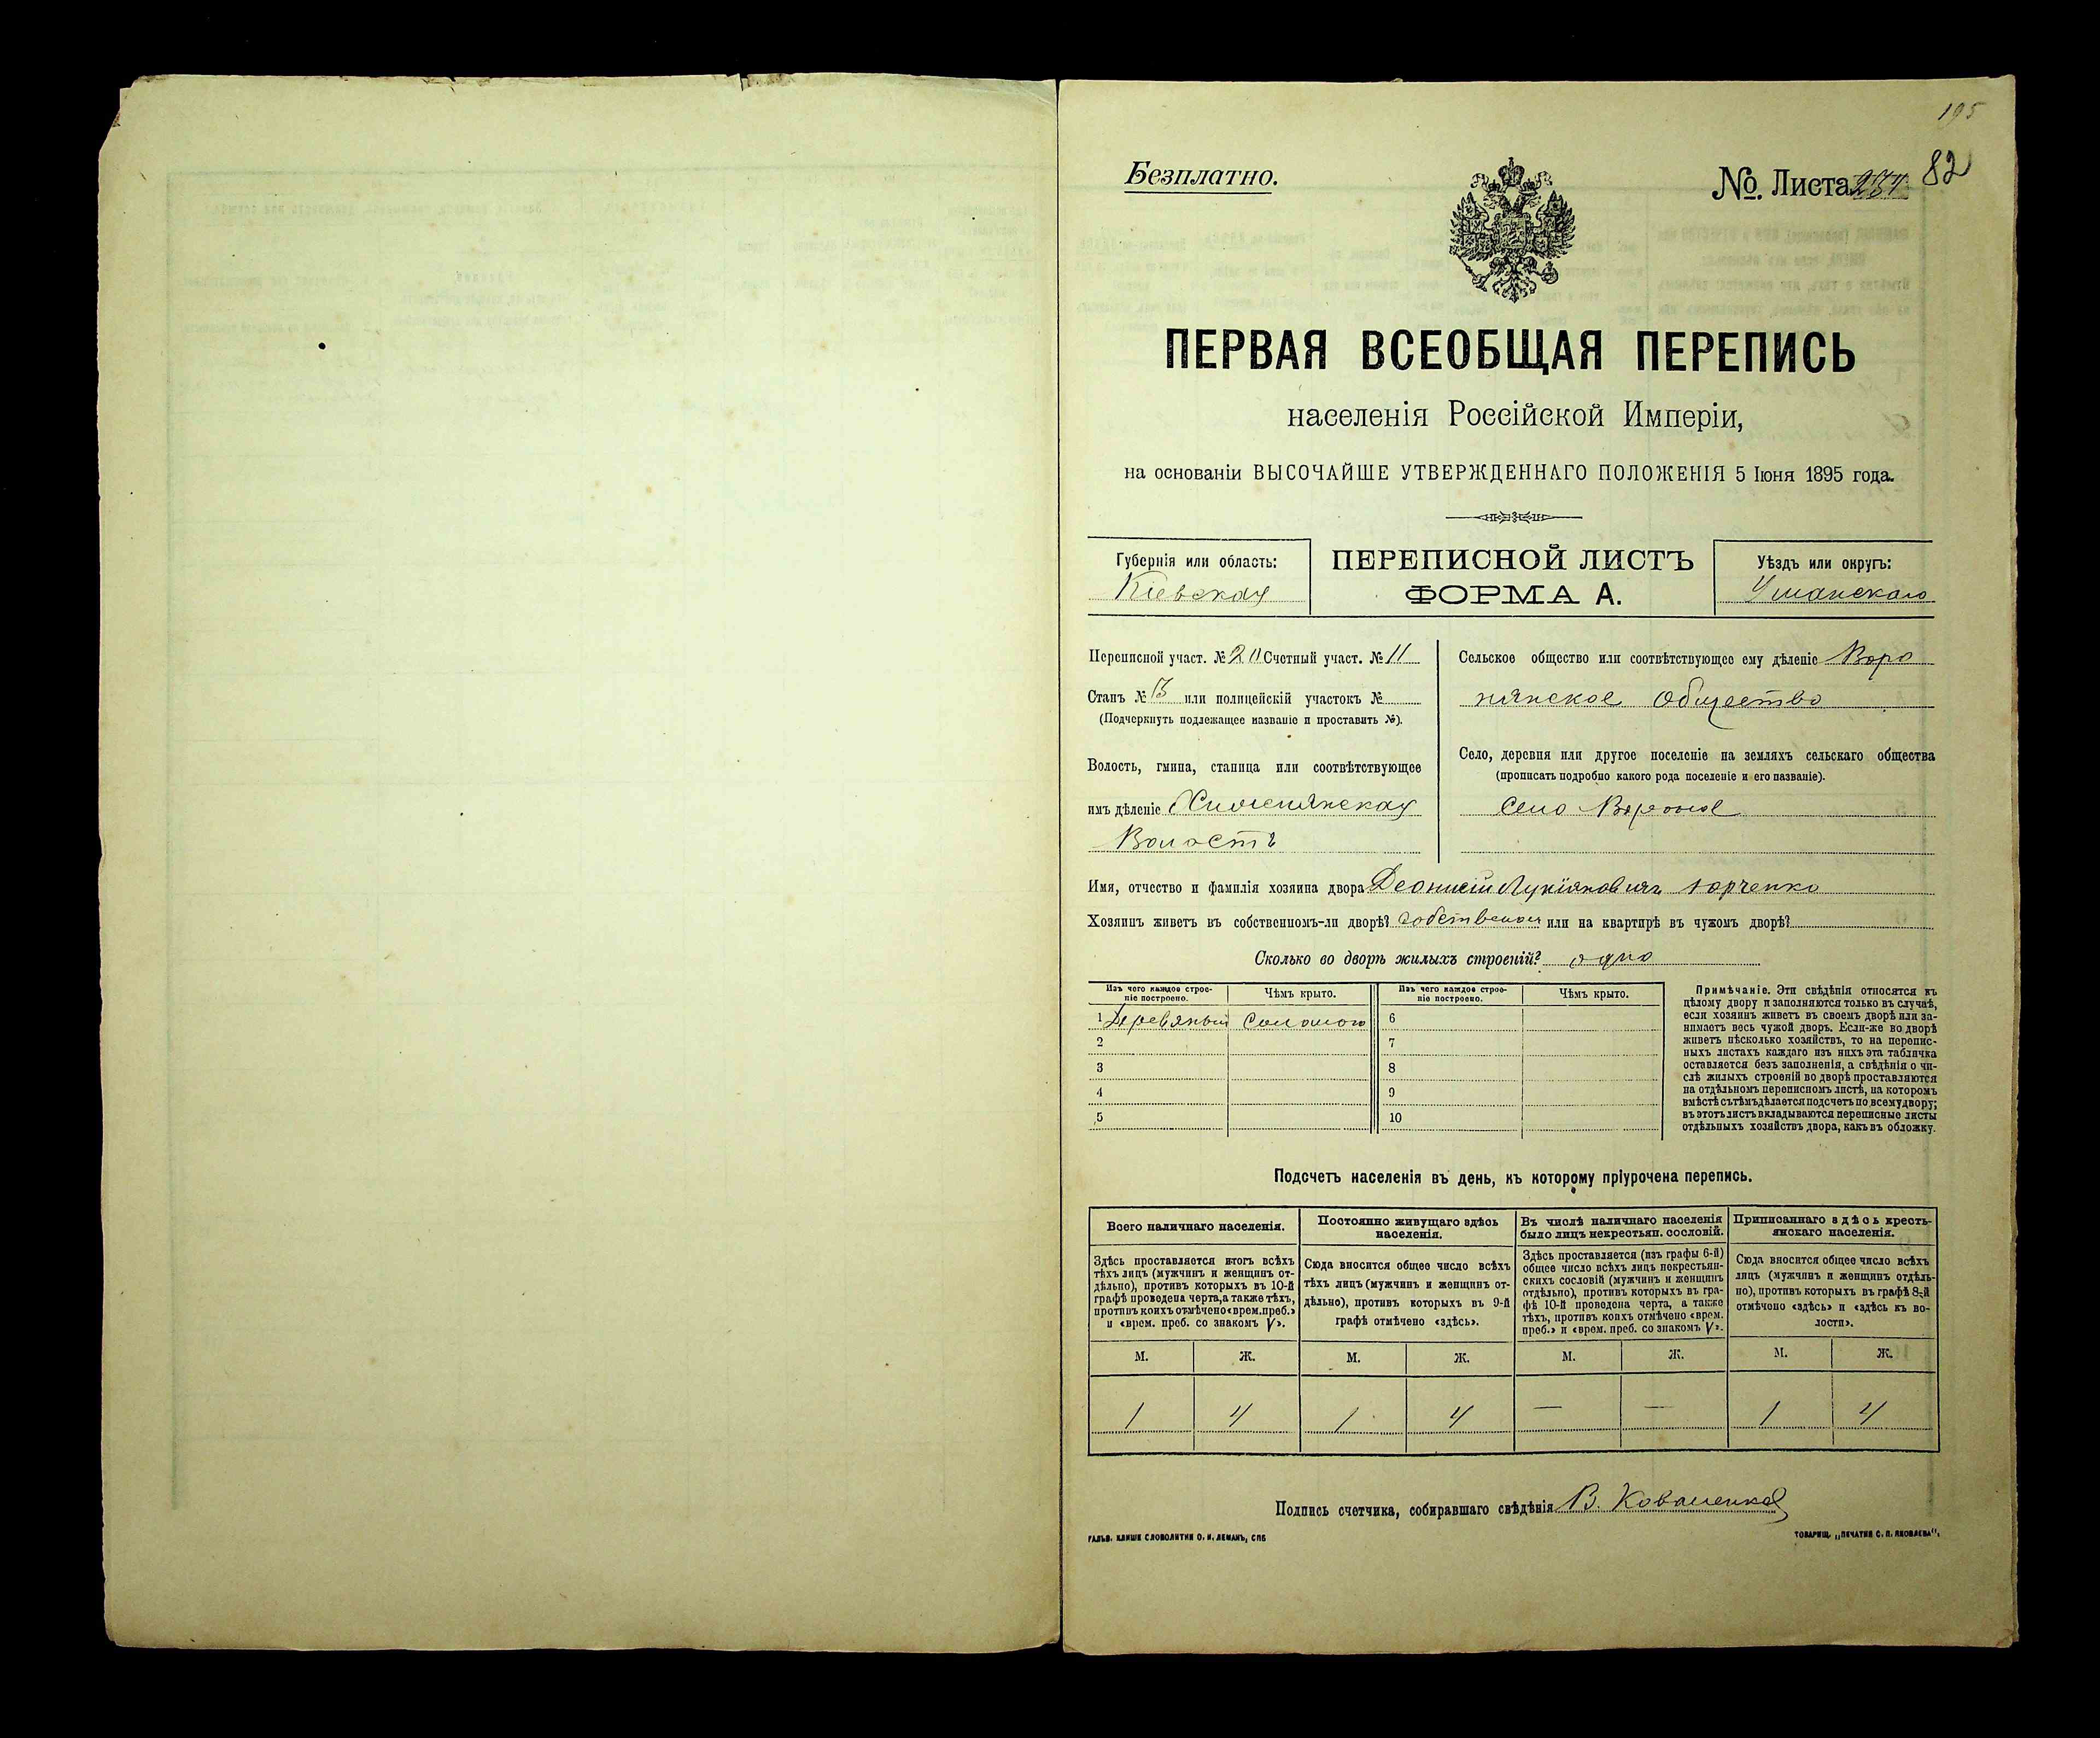 195
Безплатно.
№. Листа 82
ПЕРВАЯ ВСЕОБЩАЯ ПЕРЕПИСЬ
населенія Россійской Имперіи,
на основаніи ВЫСОЧАЙШЕ УТВЕРЖДЕННАГО ПОЛОЖЕНІЯ 5 Іюня 1895 года.
Губернія или область:
Кіевская
ПЕРЕПИСНОЙ ЛИСТЪ
ФОРМА А.
Уѣздъ или округъ:
Уманскаго
Переписной участ. № Счетный участ. № 11
Станъ № или полицейскій участокъ №
(Подчеркнуть подлежащее названіе и проставить №).
Волость, гмина, станица или соотвѣтствующее
имъ дѣленіе
Волость
Сельское общество или соотвѣтствующее ему дѣленіе Воро
нянское Общество
Село, деревня или другое поселеніе на земляхъ сельскаго общества
(прописать подробно какого рода поселеніе и его названіе).
Село Вороное
Имя, отчество и фамилія хозяина двора Деонисій Лукіяновичъ Юрченко
Хозяинъ живетъ въ собственномъ-ли дворѣ? собственом или на квартирѣ въ чужомъ дворѣ?
Сколько во дворѣ жилыхъ строеній? одно
Изъ чего каждое строе-
ніе построено.
Чѣмъ крыто.
Изъ чего каждое строе-
ніе построено.
Чѣмъ крыто.
1 Деревяный Соломою 6
2 7
3 8
4 9
5 10
Примѣчаніе. Эти свѣдѣнія относятся къ
цѣлому двору и заполняются только въ случаѣ,
если хозяинъ живетъ въ своемъ дворѣ или за-
нимаетъ весь чужой дворъ. Если-же во дворѣ
живетъ нѣсколько хозяйствъ, то на перепис-
ныхъ листахъ каждаго изъ нихъ эта табличка
оставляется безъ заполненія, а свѣдѣнія о чи-
слѣ жилыхъ строеній во дворѣ проставляются
на отдѣльномъ переписномъ листѣ, на которомъ
вмѣстѣ съ тѣмъ дѣлается подсчетъ по всему двору;
въ этотъ листъ вкладываются переписные листы
отдѣльныхъ хозяйствъ двора, какъ въ обложку.
Подсчетъ населенія въ день, къ которому пріурочена перепись.
Всего наличнаго населенія.
Здѣсь проставляется итогъ всѣхъ
тѣхъ лицъ (мужчинъ и женщинъ от-
дѣльно), противъ которыхъ въ 10-й
графѣ проведена черта, а также тѣхъ,
противъ коихъ отмѣчено «врем. преб.»
и «врем. преб. со знакомъ V».
Постоянно живущаго здѣсь
населенія.
Сюда вносится общее число всѣхъ
тѣхъ лицъ (мужчинъ и женщинъ от-
дѣльно), противъ которыхъ въ 9-й
графѣ отмѣчено «здѣсь».
Въ числѣ наличнаго населенія
было лицъ некрестьян. сословій.
Здѣсь проставляется (изъ графы 6-й)
общее число всѣхъ лицъ некрестьян-
скихъ сословій (мужчинъ и женщинъ
отдѣльно), противъ которыхъ въ гра-
фѣ 10-й проведена черта, а также
тѣхъ, противъ коихъ отмѣчено «врем.
преб.» и «врем. преб. со знакомъ V».
Приписаннаго здѣсь кресть-
янскаго населенія.
Сюда вносится общее число всѣхъ
лицъ (мужчинъ и женщинъ отдѣль-
но), противъ которыхъ въ графѣ 8-й
отмѣчено «здѣсь» и «здѣсь къ во-
лости».
М. Ж. М. Ж. М. Ж. М. Ж.
1 4 1 4 — — 1 4
Подпись счетчика, собиравшаго свѣдѣнія В. Коваленко
ГАЛЬВ. КЛИШЕ СЛОВОЛИТНИ О. И. ЛЕМАНЪ, СПБ
ТОВАРИЩ. „ПЕЧАТНЯ С. П. ЯКОВЛЕВА".